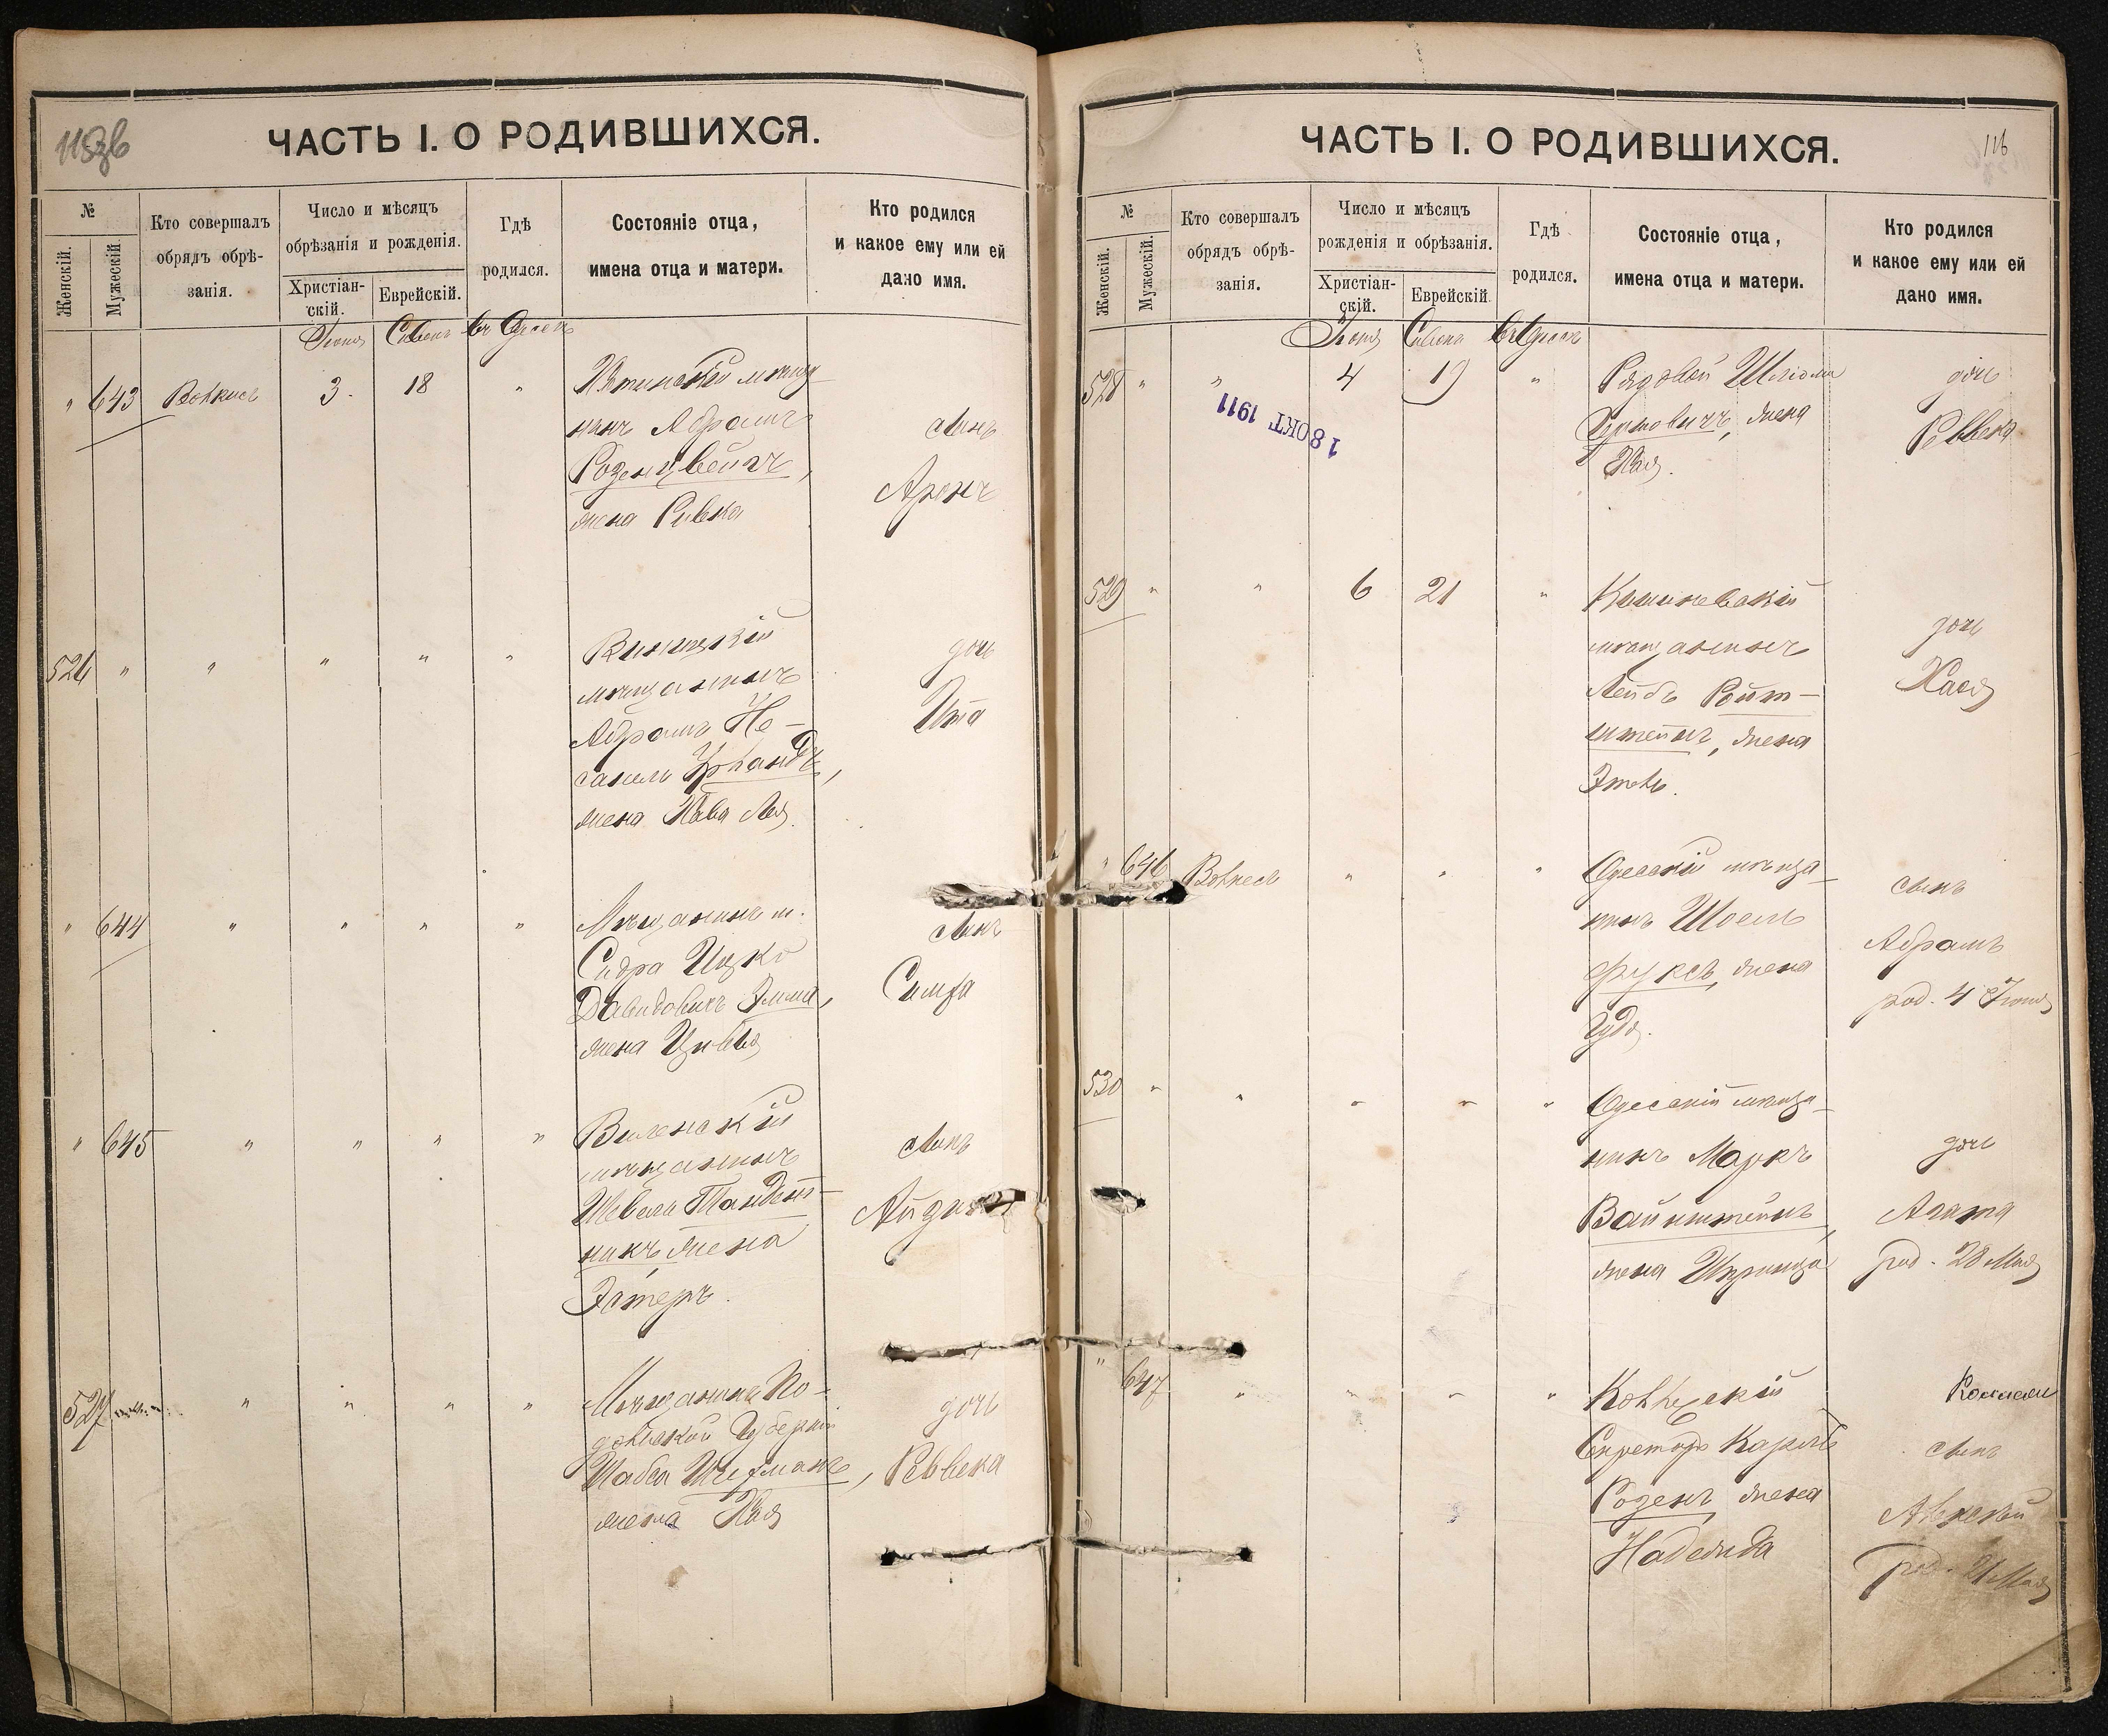 115об
ЧАСТЬ I. О РОДИВШИХСЯ.
№
Женскій.
Мужескій.
Кто совершалъ
обрядъ обрѣ-
занія.
Число и мѣсяцъ
обрѣзанія и рожденія.
Христіан-
скій.
Еврейскій.
Гдѣ
родился.
Состояніе отца,
имена отца и матери.
Кто родился
и какое ему или ей
дано имя.
Іюня Сивона въ Одессѣ
" 643 3. 18 "
мѣща-
нинъ Абрамъ
Розенцвейгъ,
жена Ривка
сынъ
Аронъ
526 " " " " "
Винницкій
мѣщанинъ
Абрамъ Не-
жена Хава Лея.
дочь
Ита
" 644 " " " "
Мѣщанинъ м.
Ицко
Давидовичъ
жена Цивья
сынъ
Симха
" 645 " " " "
Виленскій
мѣщанинъ
Шевель Тандет-
никъ, жена
Эстеръ.
сынъ
527 " " " "
Мѣщанинъ По-
дольской Губерніи
жена Хая
дочь
Ревека
ЧАСТЬ I. О РОДИВШИХСЯ.
116
№
Женскій.
Мужескій.
Кто совершалъ
обрядъ обрѣ-
занія.
Число и мѣсяцъ
рожденія и обрѣзанія.
Христіан-
скій.
Еврейскій.
Гдѣ
родился.
Состояніе отца,
имена отца и матери.
Кто родился
и какое ему или ей
дано имя.
Іюня Сивона въ Одессѣ
528 " " 4 19 "
18 ОКТ 1911
Рядовой Шліома
жена
Хая.
дочь
Ревека
529 " " 6 21 "
Кишиневскій
мѣщанинъ
Лейбъ Ройт-
штейнъ, жена
Этель.
дочь
Хася
" 646 " " "
Одесскій мѣща-
нинъ Шоель
Фуксъ, жена
сынъ
Абрамъ
род. 4 Іюня
530 " " " " "
Одесскій мѣща-
нинъ Маркъ
Вайнштейнъ,
жена Шпринца
дочь
Агата
род. 28 Мая
" 647 " " " "
Коллежскій
Секретарь Карлъ
Розенъ, жена
Надежда
сынъ
Алексѣй
род. 21 Мая